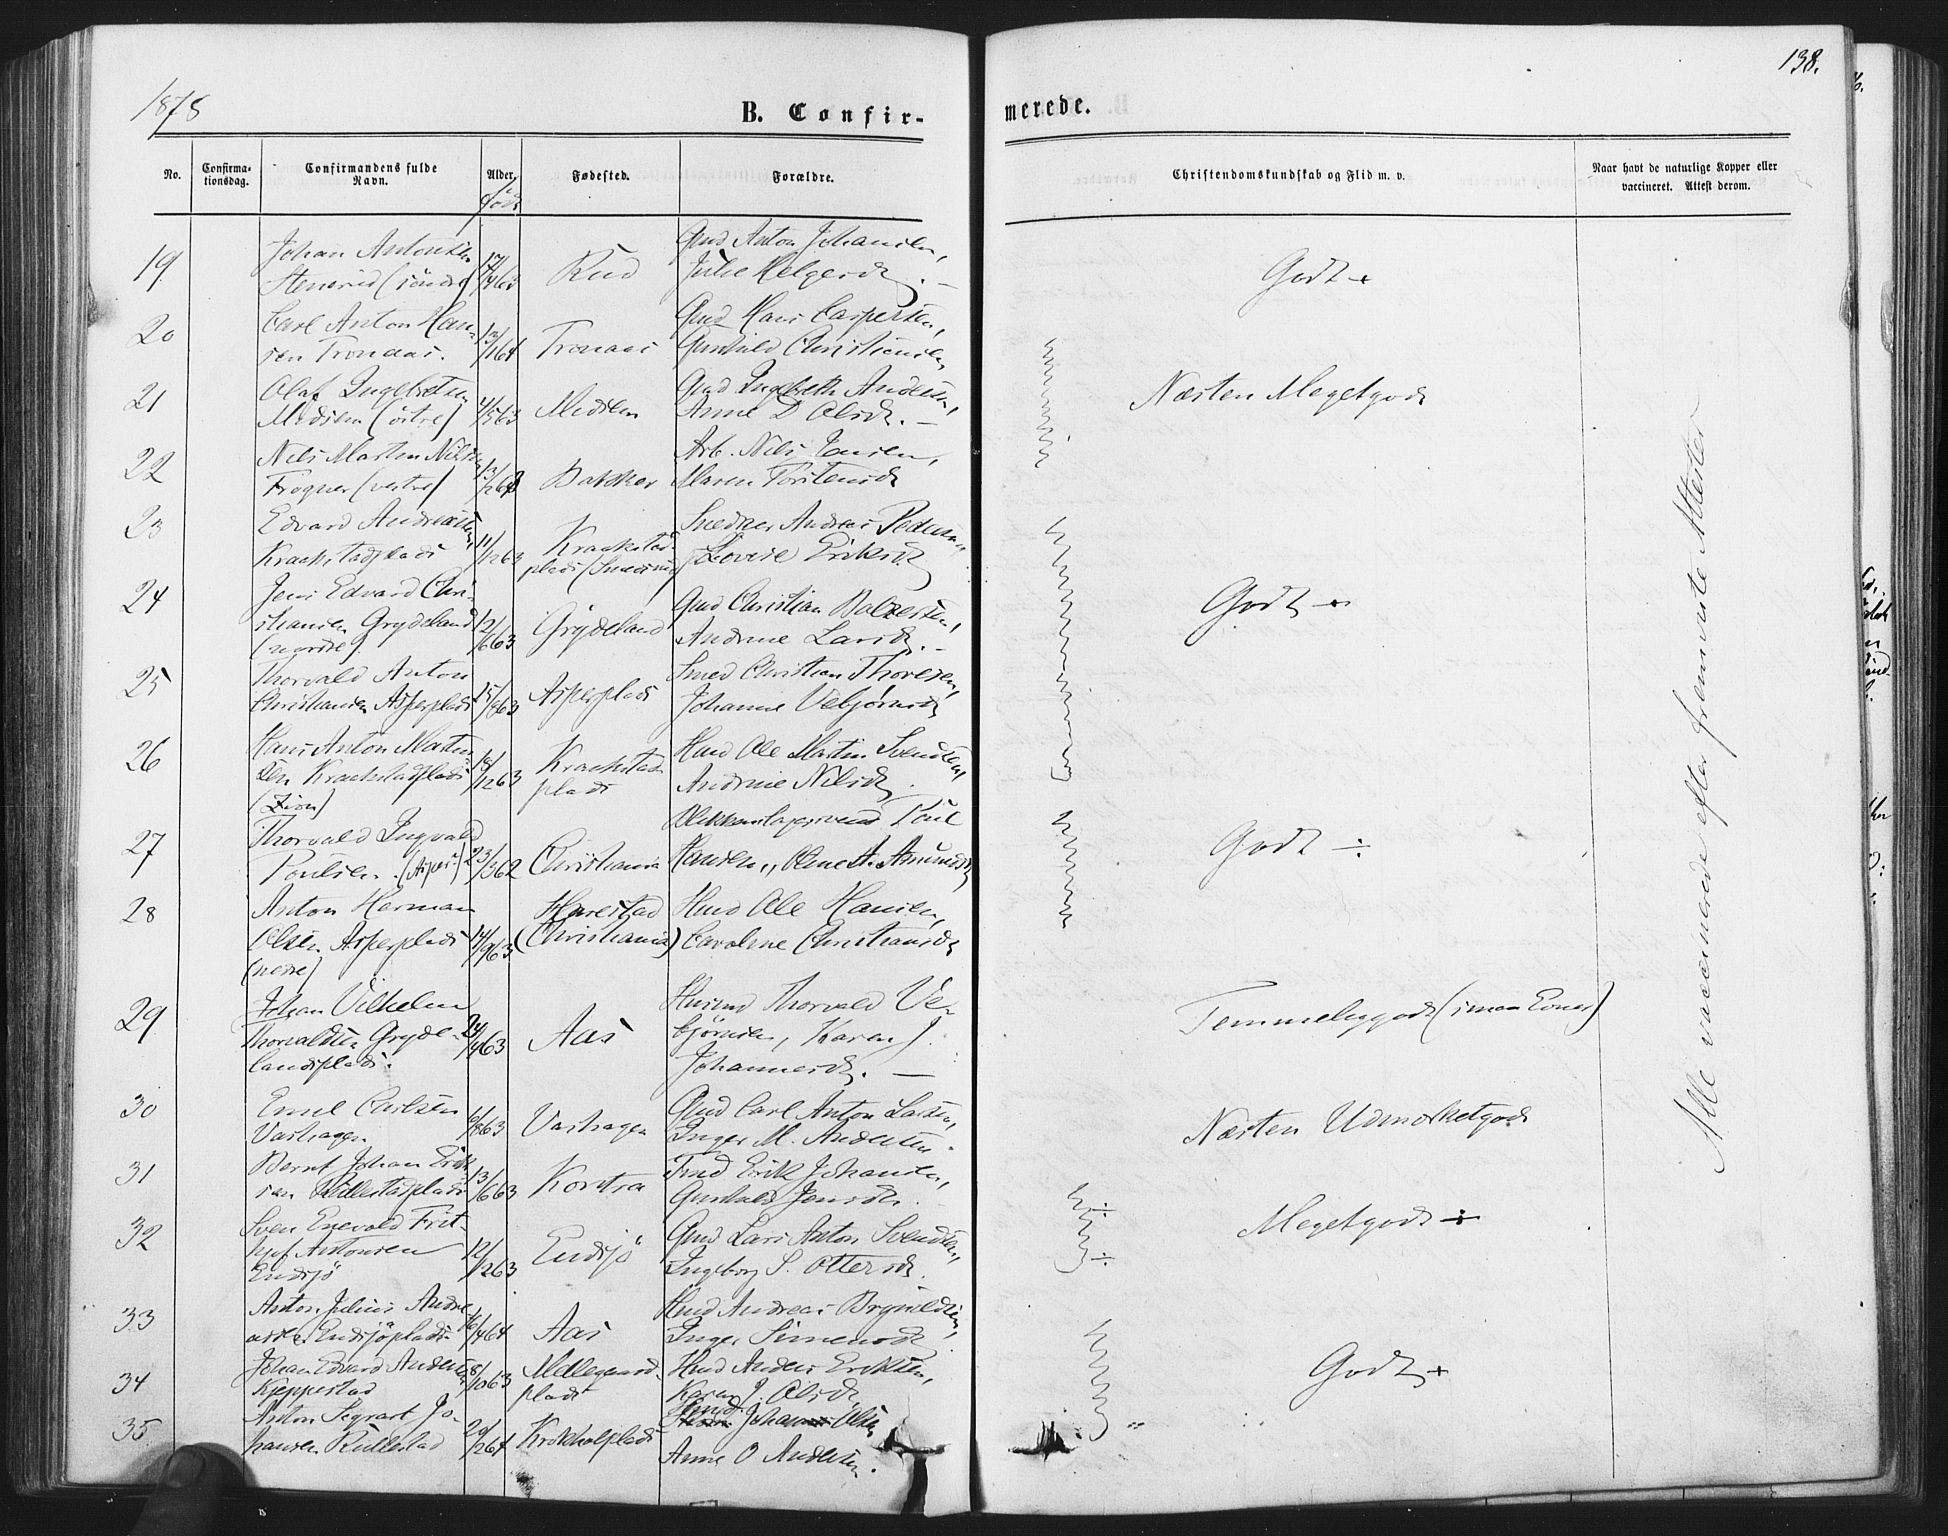 1878
138.
B. Confir-
merede.
No.
Confirma-
tionsdag.
Confirmandens fulde
Navn.
Alder.
Fødested.
Forældre.
Christendomskundskab og Flid m. v.
Naar havt de naturlige Kopper eller
vaccineret. Attest derom.
født
19
Johan Antonsen
Stensrud (söndre)
17/4 63
Rud
Gmd Anton Johansen,
Julie Helgesd.
Godt +
20
Carl Anton Han-
sen Tronaas.
13/1 64
Tronaas
Gmd Hans Caspersen,
Gunhild Christiansen
21
Olaf Ingebretsen
Midsem (östre)
4/5 63
Midsem
Gmd Ingebreth Andersen,
Anne D Olsd.
Næsten Megetgodt
22
Nils Martin Nilsen
Frogner (vestre)
13/12 63
Bakker
Arb. Nils Jensen,
Maren Torstensd
23
Edvard Andreasen,
Kraakstadplads
11/12 63
Kraakstad-
plads
Snedker Andreas Pedersen
Lovise Eriksd
24
Jens Edvard Chri-
stiansen Grydeland
(nordre)
12/6 63
Grydeland
Gmd Christian Balzersen,
Andrine Larsd.
Godt +
25
Thorvald Anton
Christiansen Asperplads
15/8 63
Asperplads
Smed Christian Thoresen,
Johanne Vebjørnsd
26
Hans Anton Martin-
sen Kraakstadplads
(Zion)
18/12 63
Kraakstad
plads
Hmd Ole Martin Svendsen,
Andrine Nilsd.
27
Thorvald Ingvald
Poulsen (Asper)
23/3 62
Christiania
Blikkenslagersvend Poul
Hansen, Oline A. Amundsd
Godt ÷
28
Anton Herman
Olsen Asperplads
(nedre)
14/9 63
Harestad
(Christiania)
Hmd Ole Hansen,
Caroline Christiansd
29
Johan Vilhelm
Thorvaldsen Gryde-
landsplads.
24/4 63
Aas
Husmd Thorvald Ve-
bjørnsen, Karen J.
Johannesd.
Temmeliggodt (smaa Evner)
30
Emil Carlsen
Vashagen
6/8 63
Vashagen
Gmd Carl Anton Larsen,
Inger M. Andersen.
Næsten Udmærketgodt
31
Bernt Johan Erik-
sen Rullestadplads
13/6 63
Kontra
Tmd Erik Johansen,
Gunhild Jensd.
32
Sven Enevold Frit-
hjof Antonsen
Endsjö
12/12 63
Endsjö
Gmd Lars Anton Svendsen,
Ingeborg S. Ottersd.
Megetgodt ÷
33
Anton Julius Andre-
asen Endsjöplads
16/4 64
Aas
Hmd Andreas Brynildsen,
Inger Simensd
34
Johan Edvard Andersen
Kjeppestad
8/10 63
Mellegaard.
plads
Hmd Anders Eriksen,
Karen J. Olsd.
Godt +
35
Anton Segvart Jo-
hansen Rullestad
20/2 64
Krokholplads
Hmd. Johan Olsen
Anne O Andersen.
Alle vaccinerede efter fremviste Attester